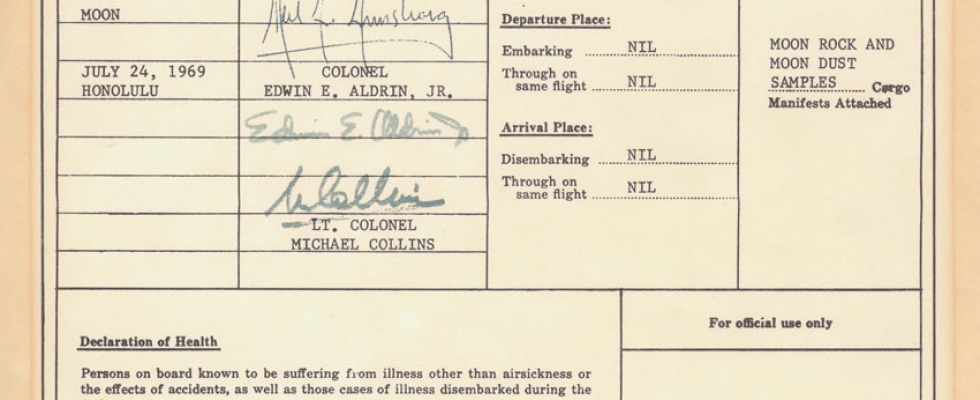 MOON
Neil A. Armstrong
JULY 24, 1969
HONOLULU
COLONEL
EDWIN E. ALDRIN, JR.
Edwin E. Aldrin Jr
M Collins
LT. COLONEL
MICHAEL COLLINS
Departure Place:
Embarking NIL
Through on
same flight NIL
Arrival Place:
Disembarking NIL
Through on
same flight NIL
MOON ROCK AND
MOON DUST
SAMPLES Cargo
Manifests Attached
Declaration of Health
Persons on board known to be suffering from illness other than airsickness or
the effects of accidents, as well as those cases of illness disembarked during the
For official use only